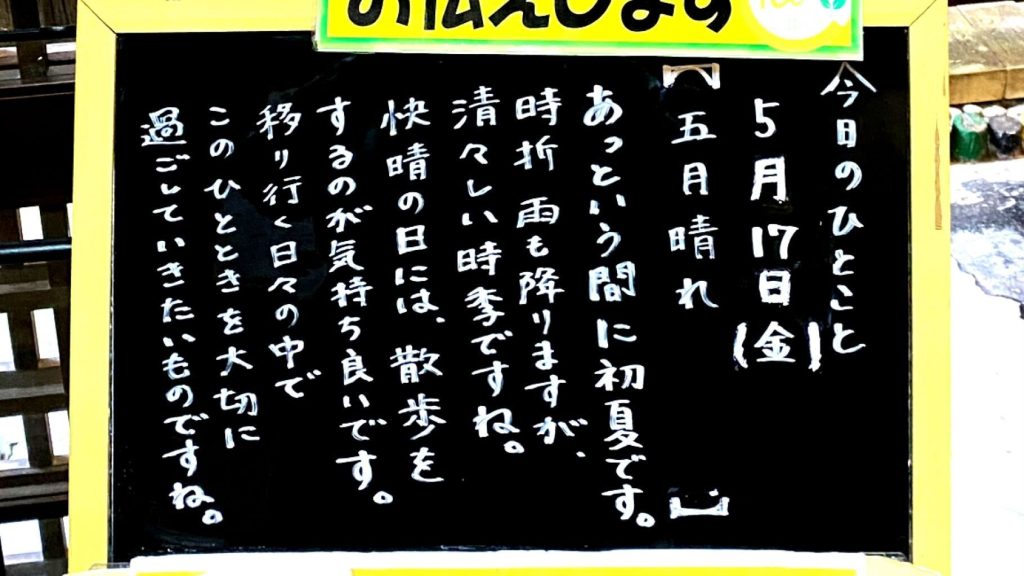 お伝えします
今日のひとこと
5月17日(金)
【五月晴れ】
あっという間に初夏です。
時折雨も降りますが、
清々しい時季ですね。
快晴の日には、散歩を
するのが気持ち良いです。
移り行く日々の中で
このひとときを大切に
過ごしていきたいものですね。